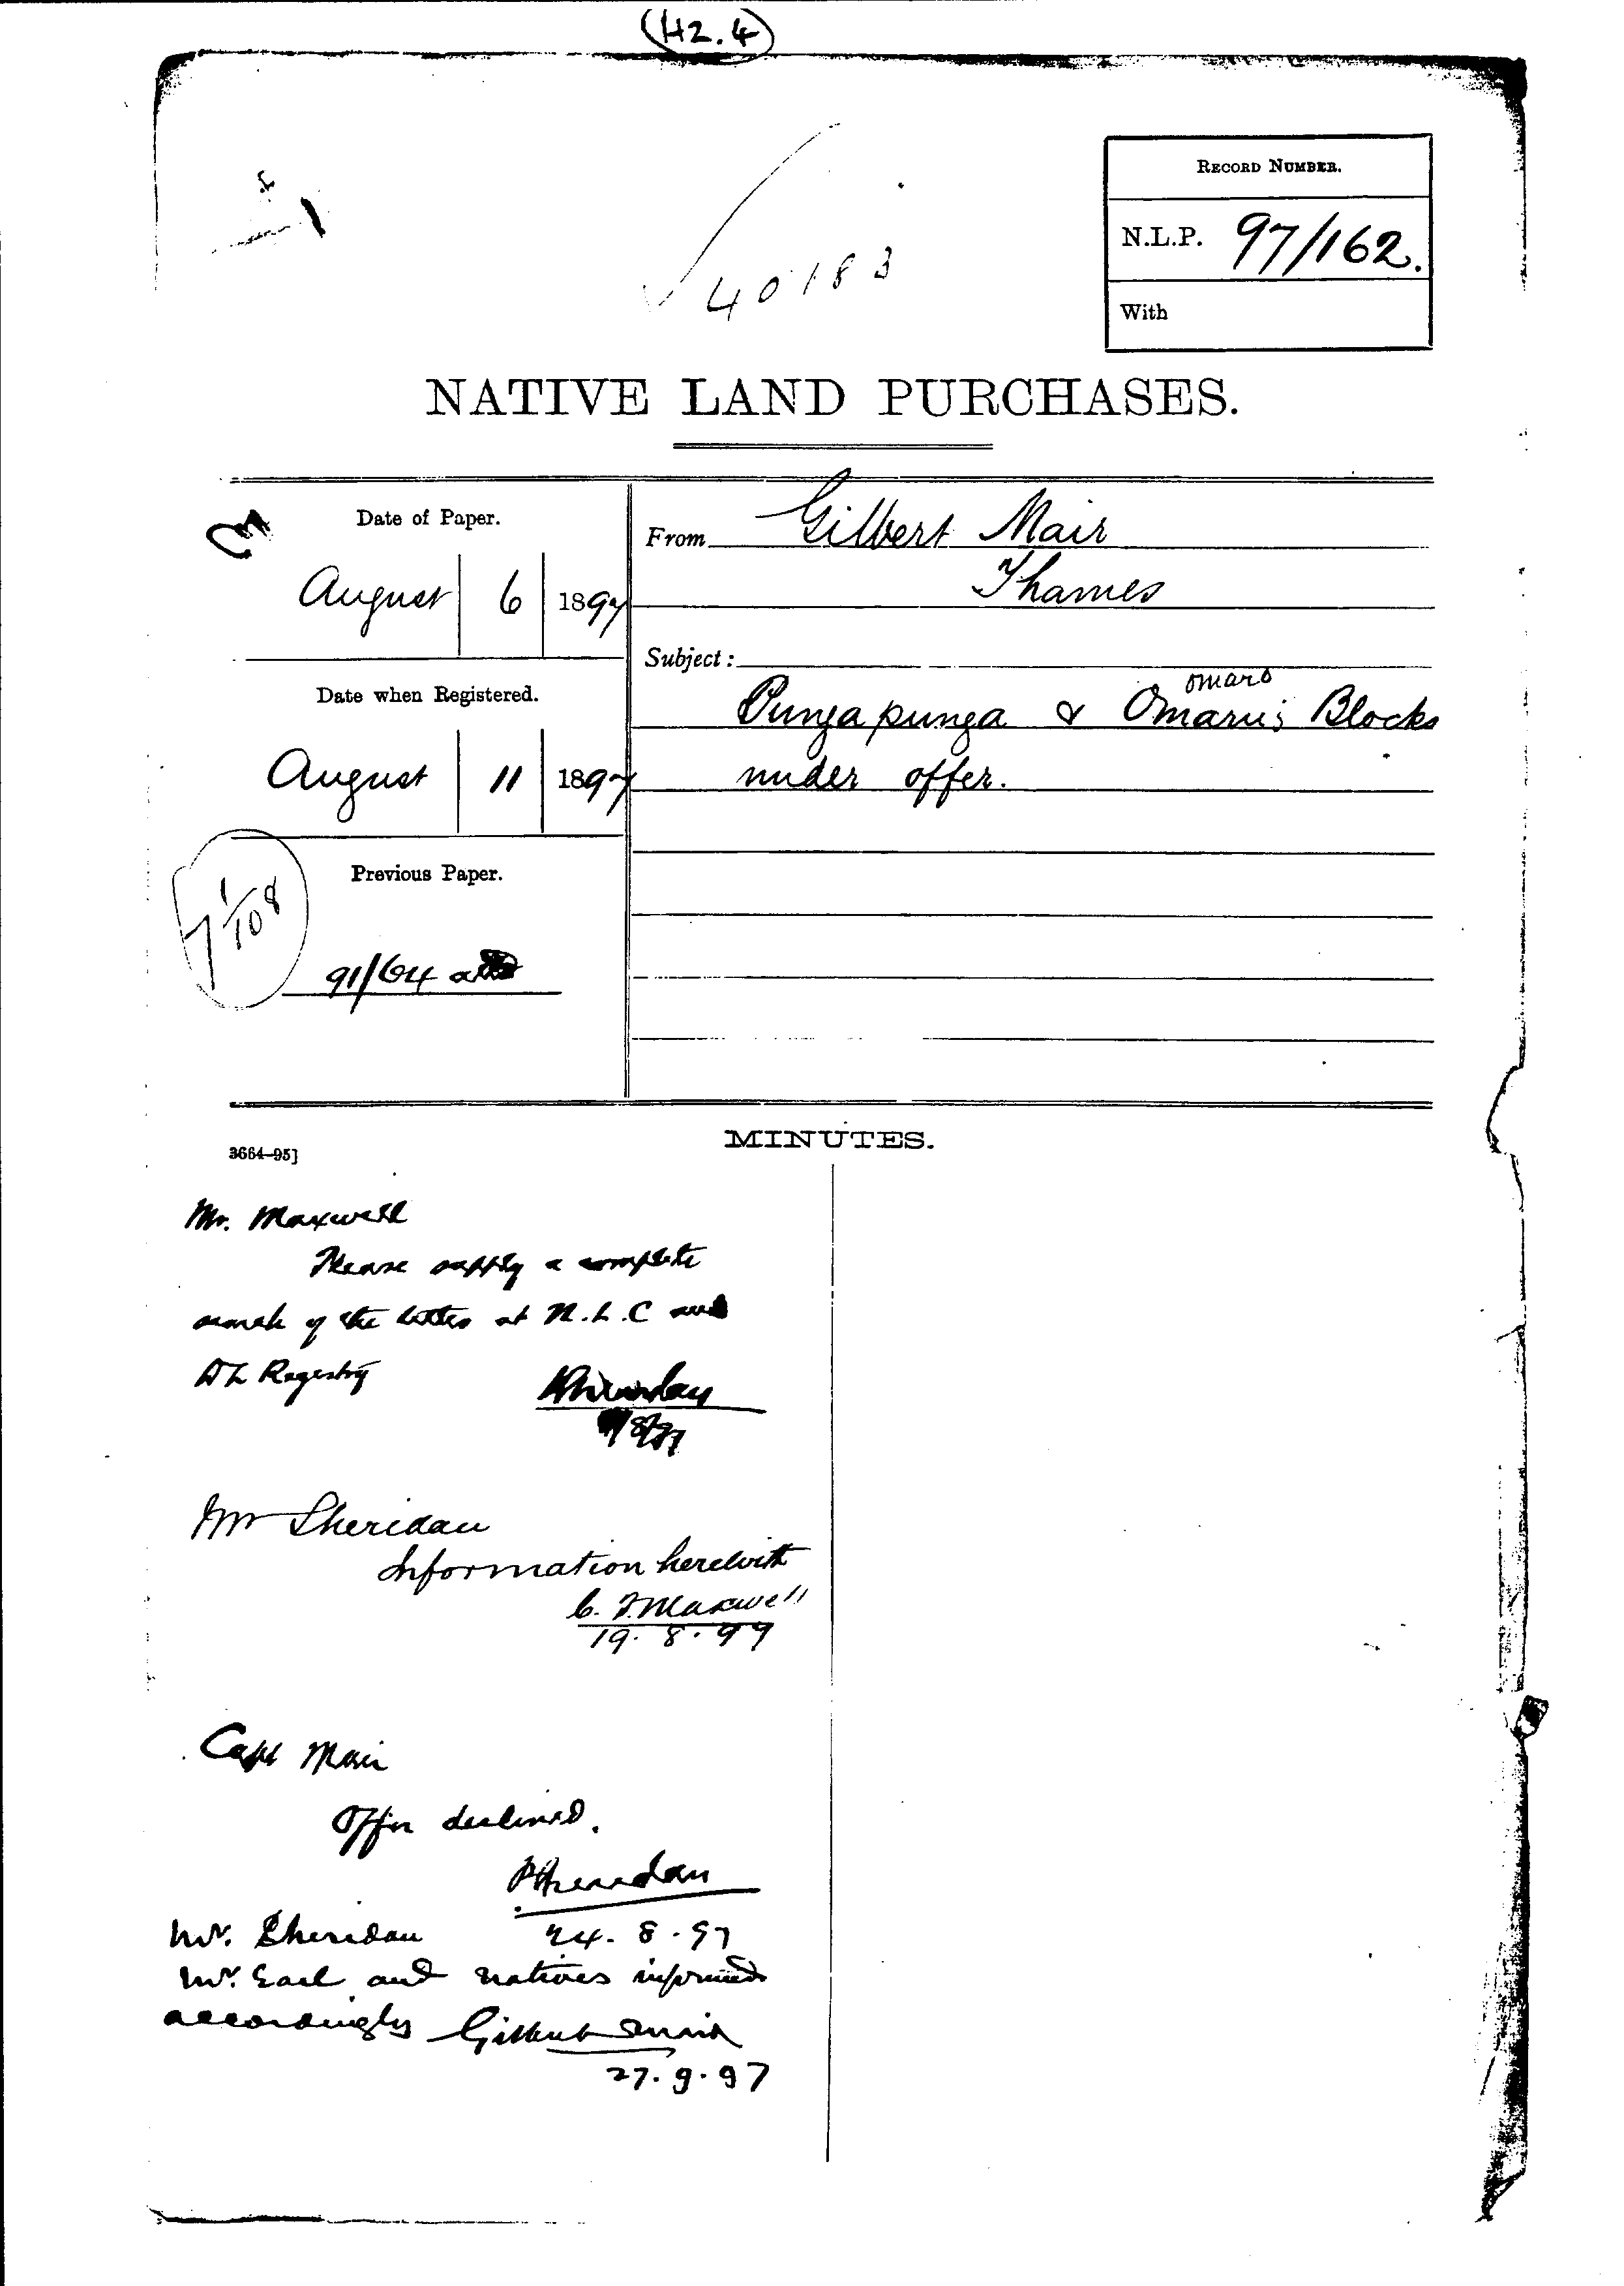 (H2.4)
40183
RECORD NUMBER.
N.L.P. 97/162.
With
NATIVE LAND PURCHASES.
Date of Paper.
August 6 1897
Date when Registered.
August 11 1897
Previous Paper.
91/64
From Gilbert Mair
Thames
Subject:
omaro
Pungapunga & Omaru's Blocks
under offer.
3664–95]
MINUTES.
Mr. Maxwell
Please supply a complete
search of the titles at N.L.C and
DL Registry
PSheridan
/8/97
Mr Sheridan
Information herewith
C. J. Maxwell
19.8.97
Capt Mair
Offer declined.
PSheridan
24.8.97
Mr. Sheridan
Mr. Earl and natives informed
accordingly Gilbert Mair
27.9.97